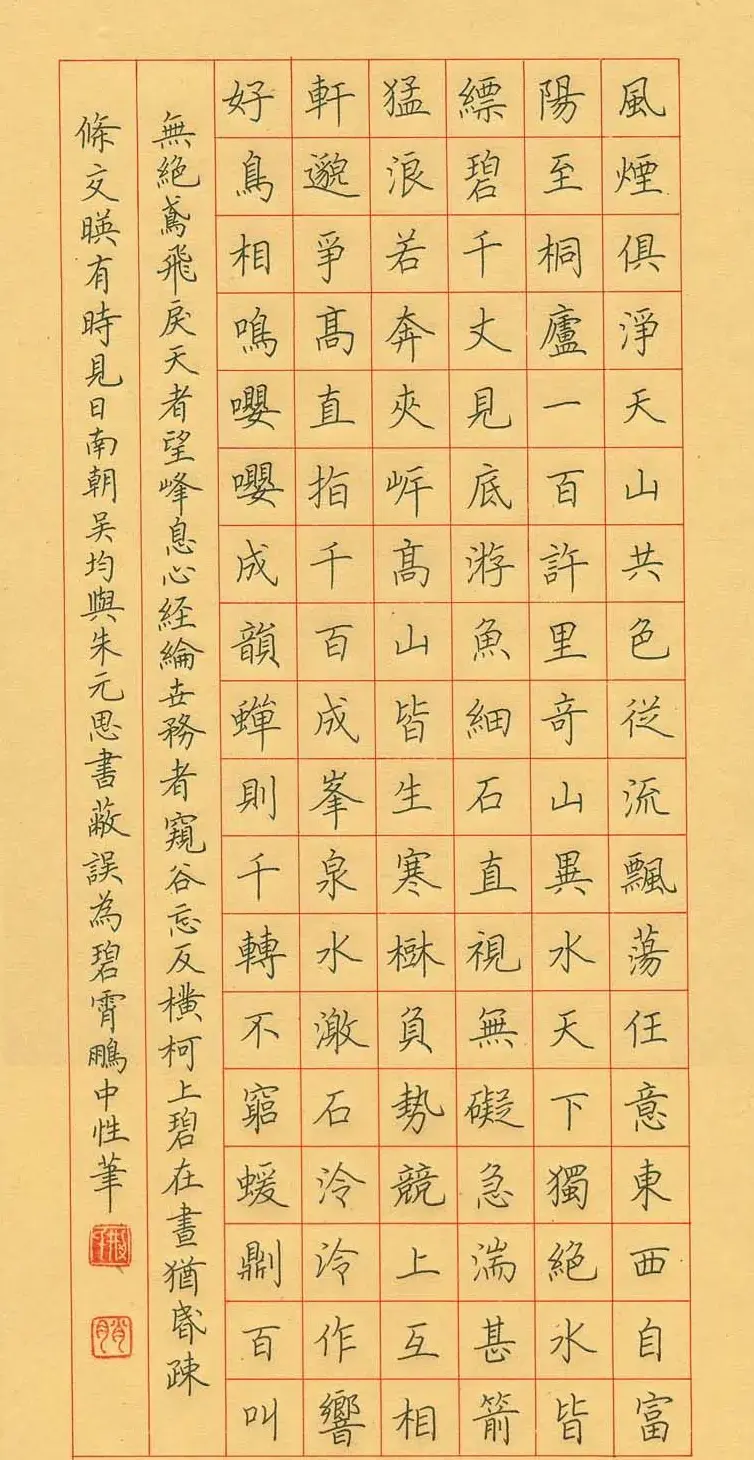 風煙俱淨天山共色從流飄蕩任意東西自富
陽至桐廬一百許里奇山異水天下獨絕水皆
縹碧千丈見底游魚細石直視無礙急湍甚箭
猛浪若奔夾岸髙山皆生寒樹負勢競上互相
軒邈爭髙直指千百成峯泉水激石泠泠作響
好鳥相鳴嚶嚶成韻蟬則千轉不窮蝯則百叫
無絕鳶飛戾天者望峰息心経綸世務者窺谷忘反橫柯上碧在晝猶昏疎
條交暎有時見日南朝吳均與朱元思書蔽誤為碧霄鵬中性筆